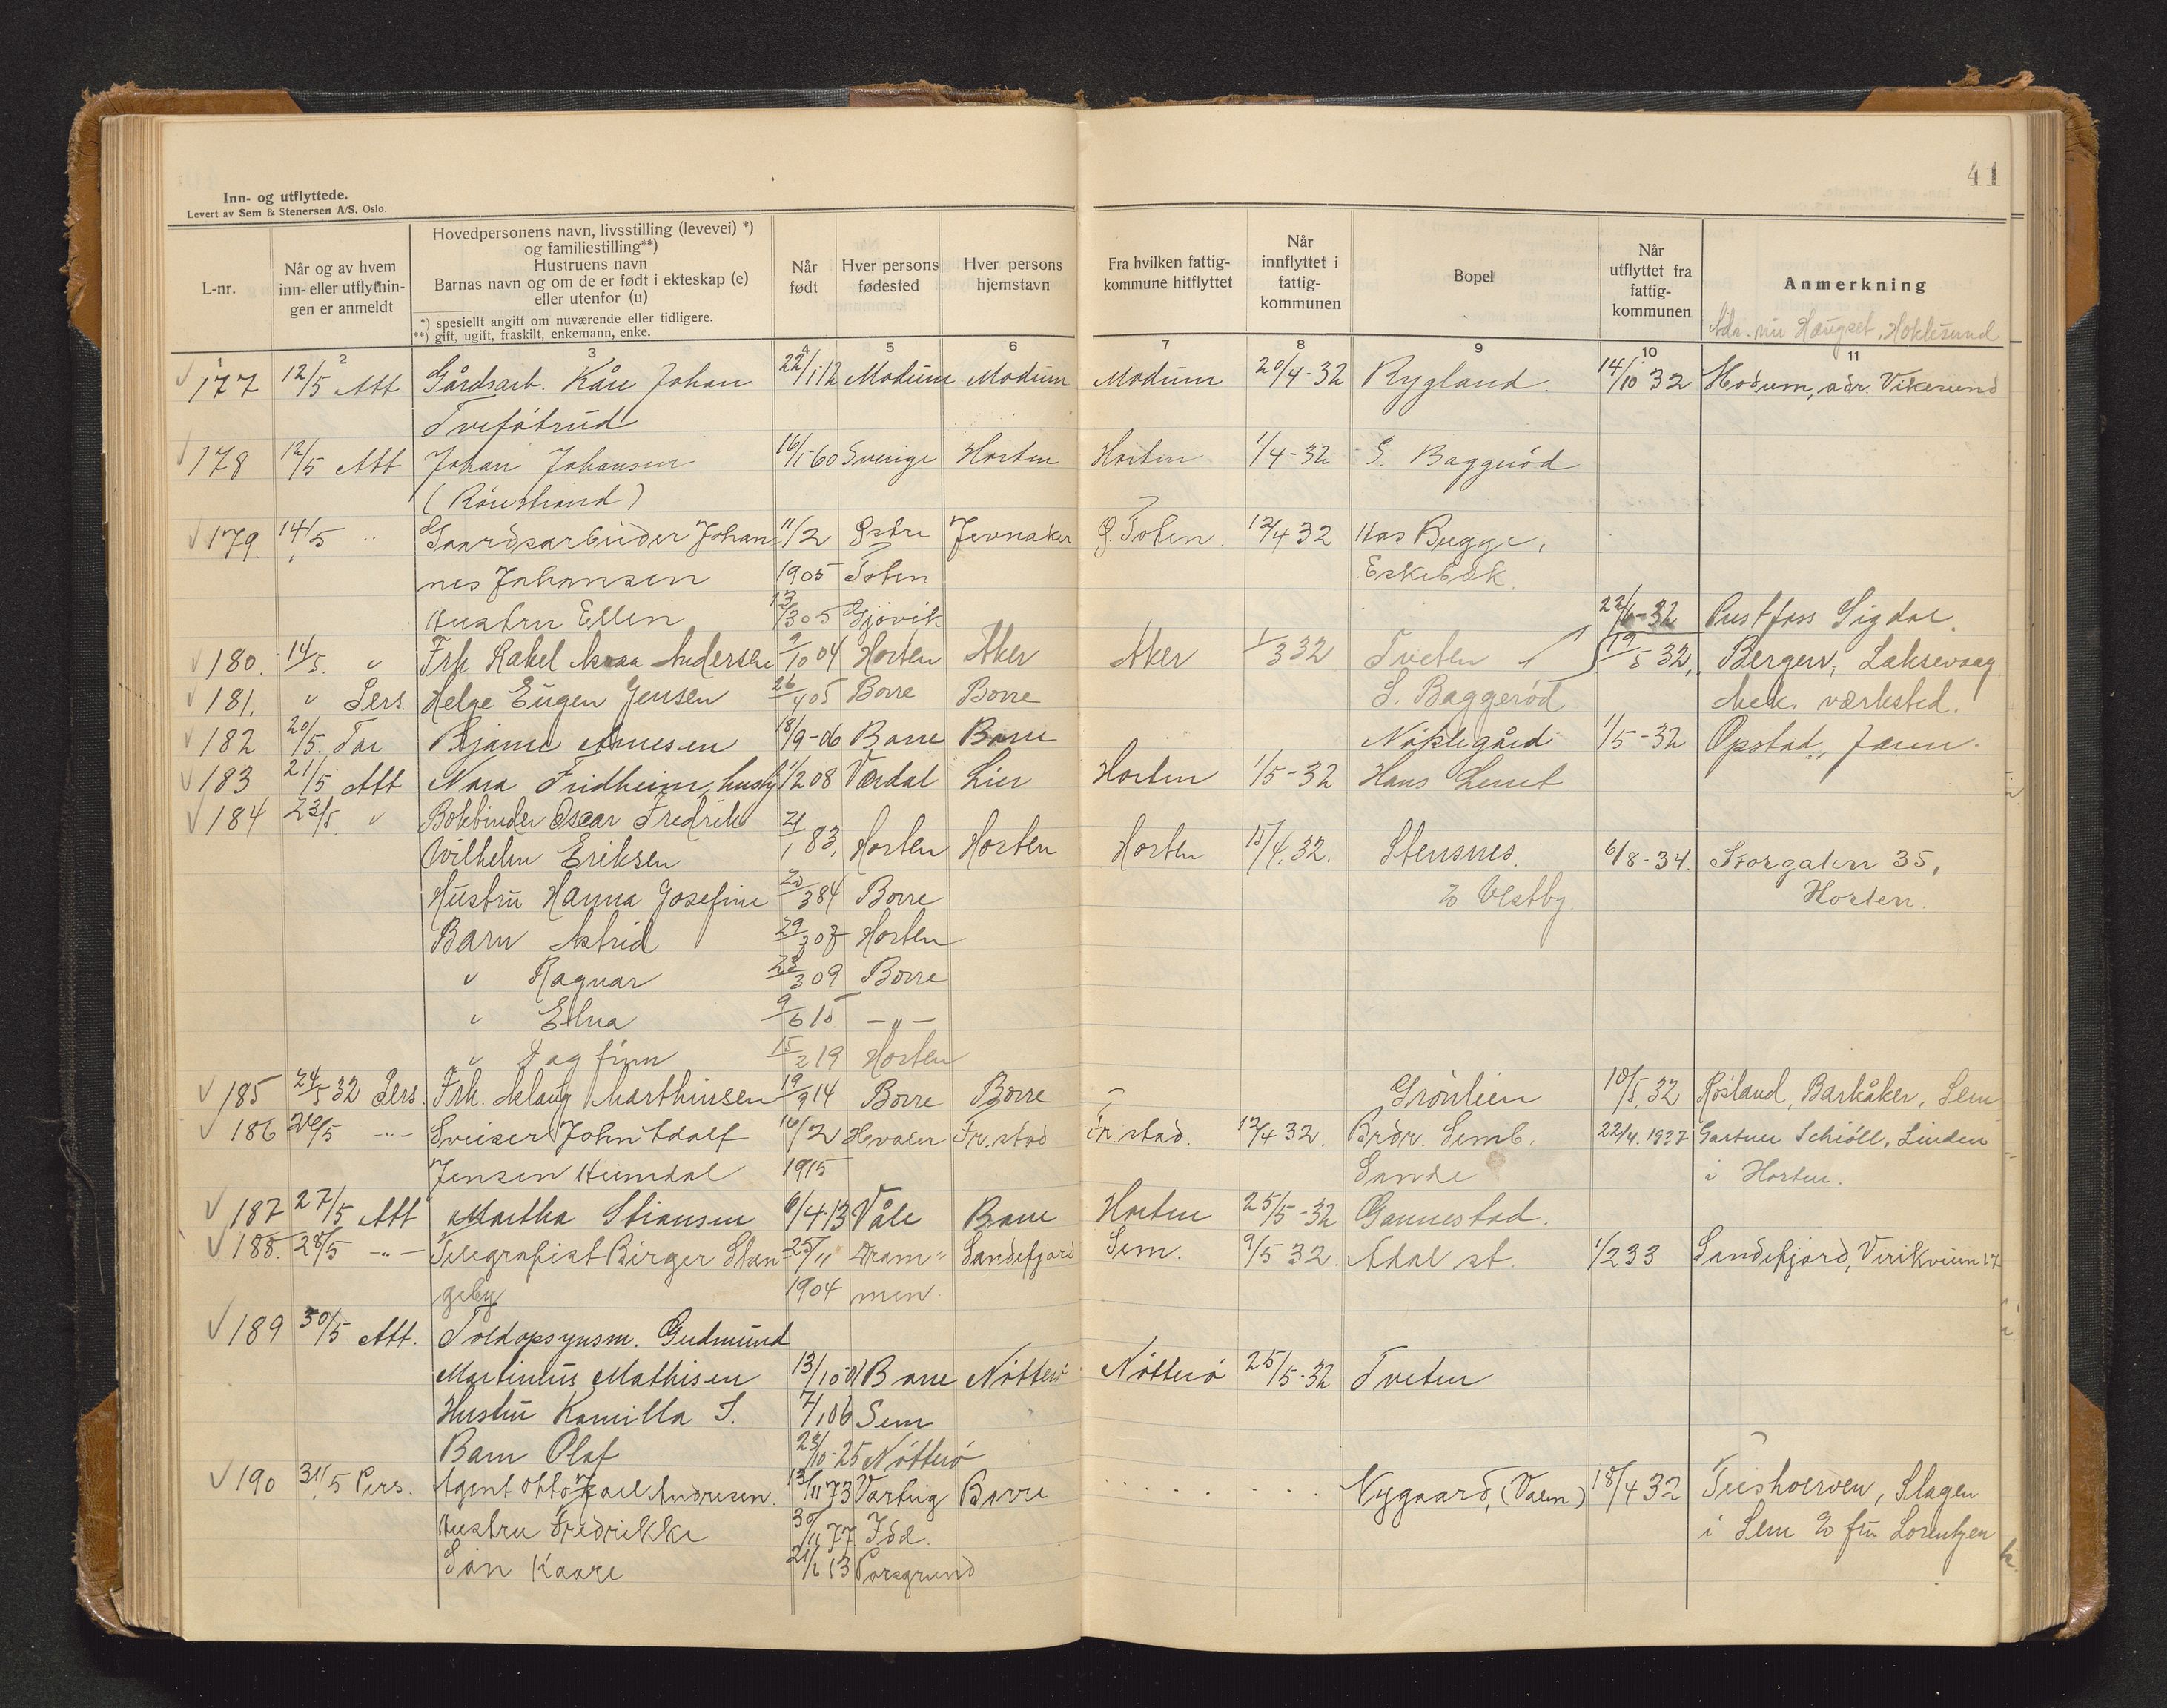 41
Inn- og utflyttede.
Levert av Sem & Stenersen A/S, Oslo.
L-nr.
Når og av hvem inn- eller utflytnin- gen er anmeldt
Hovedpersonens navn, livsstilling (levevei) *)
og familiestilling**)
Hustruens navn
Barnas navn og om de er født i ekteskap (e)
eller utenfor (u)
*) spesiellt angitt om nuværende eller tidligere.
**) gift, ugift, fraskilt, enkemann, enke.
Når født
Hver persons fødested
Hver persons hjemstavn
Fra hvilken fattig- kommune hitflyttet
Når innflyttet i fattig- kommunen
Bopel
Når utflyttet fra fattig- kommunen
Anmerkning
Adr. nu Haugset, Hokksund
1 2 3 4 5 6 7 8 9 10 11
177 12/5 Att Gårdsarb. Kåre Johan 22/1 12 Modum Modum Modum 20/4-32 Rygland. 14/10 32 Modum, adr. Vikersund
178 12/5 Att Johan Johansen 16/1-60 Sverige Horten Horten 1/4-32 S. Baggerød
(Rörestrand)
179. 14/5 " Gaardsarbeider Johan 11/2 Østre Jevnaker Ø. Toten. 12/4 32 Hos Bugge,
nes Johansen 1905 Toten Eskebæk.
Hustru Ellen 13/3 05 Gjövik 22/6-32 Prestfoss Sigdal.
180. 14/5. " Frk Rakel Andersen 9/10 04 Horten Aker Aker 1/3 32 Tveten 19/5 32, Bergen, Laksevaag
181. " Pers. Helge Eugen Jensen 26/4 05 Borre Borre S. Baggerød mek. værksted.
182 20/5. Bjarne Arnesen 18/9-06 Borre Borre Nökligård 1/5-32 Opstad, Jæren.
183 21/5 Att Nora Fridheim, hushj 1/2 08 Værdal Lier Horten 1/5-32 Hans
184 23/5. " Bokbinder Oscar Fredrik
Wilhelm Eriksen 21/1 83, Horten Horten Horten 15/4.32. Stensnes. 6/8-34. Storgaten 35,
Hustru Hanna Josefine 20/3 84 Borre % Vestby. Horten.
Barn Astrid 29/3 07 Horten
" Ragnar 28/3 09 Borre
" Edna 9/6 15 — " —
" Dagfinn 15/2 19 Horten
185 24/5 32 Pers. Frk. Aslaug Marthinsen 19/9 14 Borre Borre Grönlien 10/5.32 Røsland, Barkåker, Sem
186 26/5 -"- Sveiser John Adolf 16/2 Hvaler Fr.stad Fr.stad. 12/4 32. Brdr. Semb. 22/4.1937 Gartner Schiöll, Linden
Jensen Heimdal 1915 Sande i Horten.
187 27/5 Att Martha Stiansen 6/4.13 Våle Borre Horten 25/5-32 Gannestad.
188. 28/5 -"- Telegrafist Birger Stan- 25/11 Dram= Sandefjord Sem. 9/5 32. Adal st. 1/2 33 Sandefjord, Virikveien 17
geby 1904 men.
189 30/5 Att. Toldopsynsm. Gudmund
Martinius Mathisen 13/10-01 Borre Nötterö Nötterö 25/5-32 Tveten
Hustru Kamilla S. 7/1 06 Sem
Barn Olaf 23/10-25 Nötterö
190 31/5 Pers. Agent Otto Joael Andresen. 13/11 73 Varteig Borre . . . . . . Nygaard, (Valen) 18/4 32 Slagen
Hustru Fredrikke 30/11 77 Idd. i Sem % fru Lorentzen
Sön Kaare 21/6 13 Porsgrund